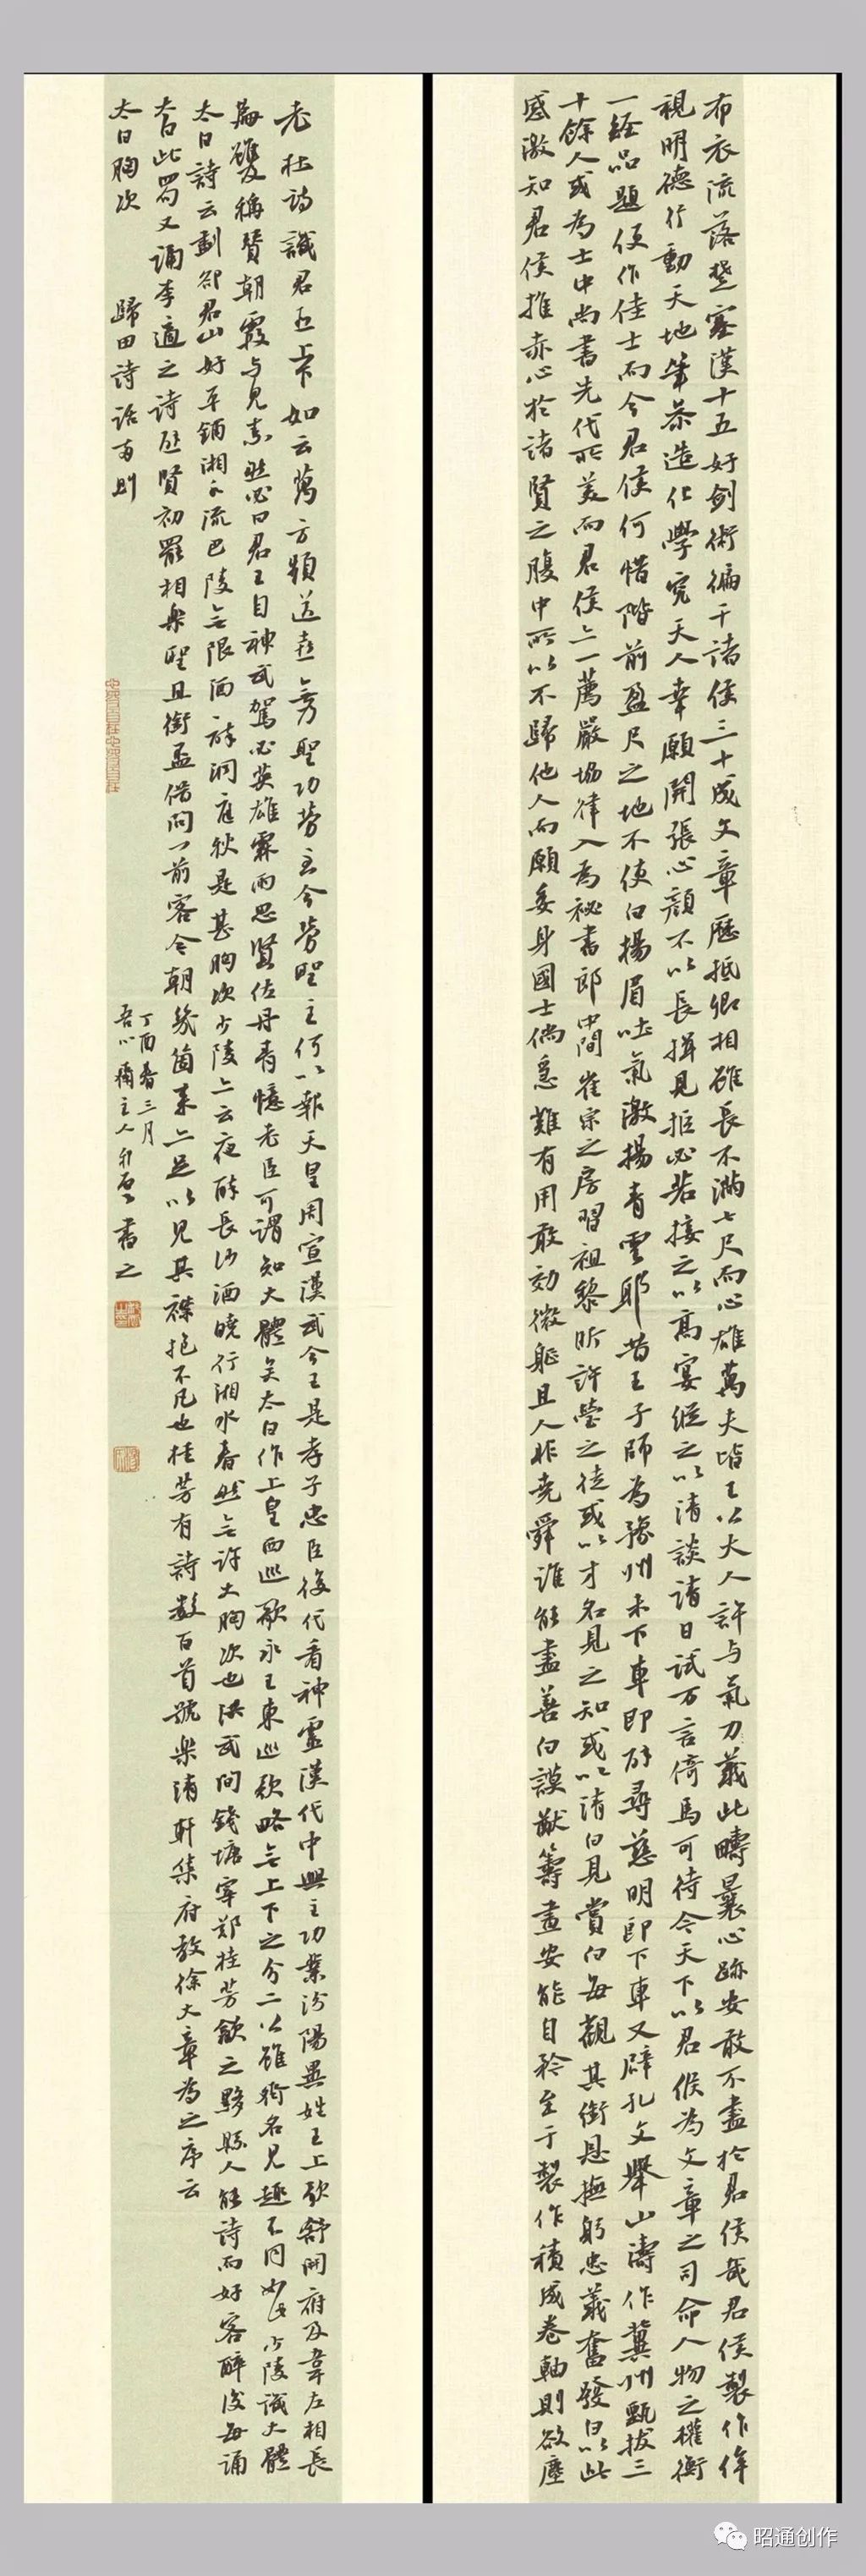 布衣流落楚塞漢十五好劍術徧干諸侯三十成文章歷抵卿相雖長不滿七尺而心雄萬夫皆王公大人許与氣刀義此疇曩心跡安敢不盡於君侯哉君侯製作侔
視明德行動天地筆參造化學究天人幸願開張心顏不以長揖見拒必若接之以高宴縱之以清談請日試万言倚馬可待今天下以君候為文章之司命人物之權衡
一經品題便作佳士而今君侯何惜階前盈尺之地不使白揚眉吐氣激揚青雲耶昔王子師為豫州未下車即辟尋慈明即下車又辟孔文舉山濤作冀州甄拔三
十餘人或為士中尚書先代所美而君侯亦一薦嚴協律入為祕書郎中間崔宗之房習祖黎昕許瑩之徒或以才名見之知或以清白見賞白每觀其銜恩撫躬忠義奮發白以此
感激知君侯推赤心於諸賢之腹中所以不歸他人而願委身國士倘急難有用敢効微軀且人非堯舜誰能盡善白謨猷籌畫安能自矜至于製作積成卷軸則欲塵
老杜詩識君臣上下如云萬方頻送喜無乃聖功勞至今勞聖主何以報天皇周宣漢武今王是孝子忠臣後代看神靈漢代中興主功業汾陽異姓王上歌舒開府及韋左相長
篇雖稱贊朝霞与見素然必曰君王自神武駕必英雄霖雨思賢佐丹青憶老臣可謂知大體矣太白作上皇西巡歌永王東巡歌略無上下之分二公雖齊名見趣不同如此少陵識大體
太白詩云剗卻君山好平鋪湘水流巴陵無限酒醉洞庭秋是甚胸次少陵亦云夜醉長沙酒曉行湘水春然無許大胸次也洪武間錢塘宰鄭桂芳歙之黟縣人能詩而好客醉後每誦
太白此篇又誦李適之詩避賢初罷相樂聖且銜盃借問一前客今朝幾箇來亦足以見其襟抱不凡也桂芳有詩數百首號樂清軒集府教徐大章為之序云
太白胸次 歸田詩話兩則
丁酉春三月
吾心齋主人書之
昭通创作